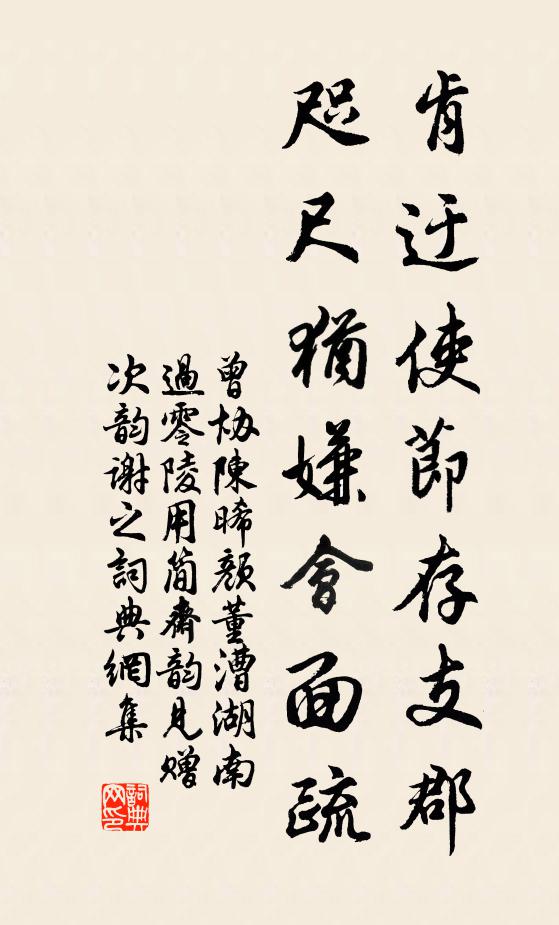 肯迂使節存支郡
咫尺猶嫌會面疏
曾協陳晞顏董漕湖南
過零陵用簡齋韵見贈
次韵謝之詞典網集
詞典网印